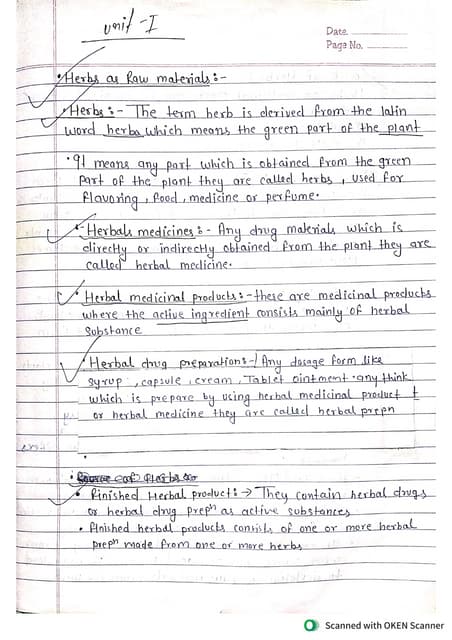 Unit-I
Date
Page No.
Herbs as Raw materials:-
Herbs:- The term herb is derived from the latin
word herba which means the green part of the plant
• It means any part which is obtained from the green
part of the plant they are called herbs, used for
flavoring, food, medicine or perfume.
• Herbals medicines:- Any drug materials which is
directly or indirectly obtained from the plant they are
called herbal medicine.
Herbal medicinal products:- these are medicinal products
where the active ingredient consists mainly of herbal
substance
• Herbal drug preparations:- Any dosage form like
syrup, capsule, cream, Tablet ointment. any think
which is prepare by using herbal medicinal product
or herbal medicine they are called herbal prepn
• Source of Herbs
• Finished Herbal product:→ They contain herbal drugs
or herbal drug prepn as active substances
• Finished herbal products consists of one or more herbal
prepn made from one or more herbs
Scanned with OKEN Scanner